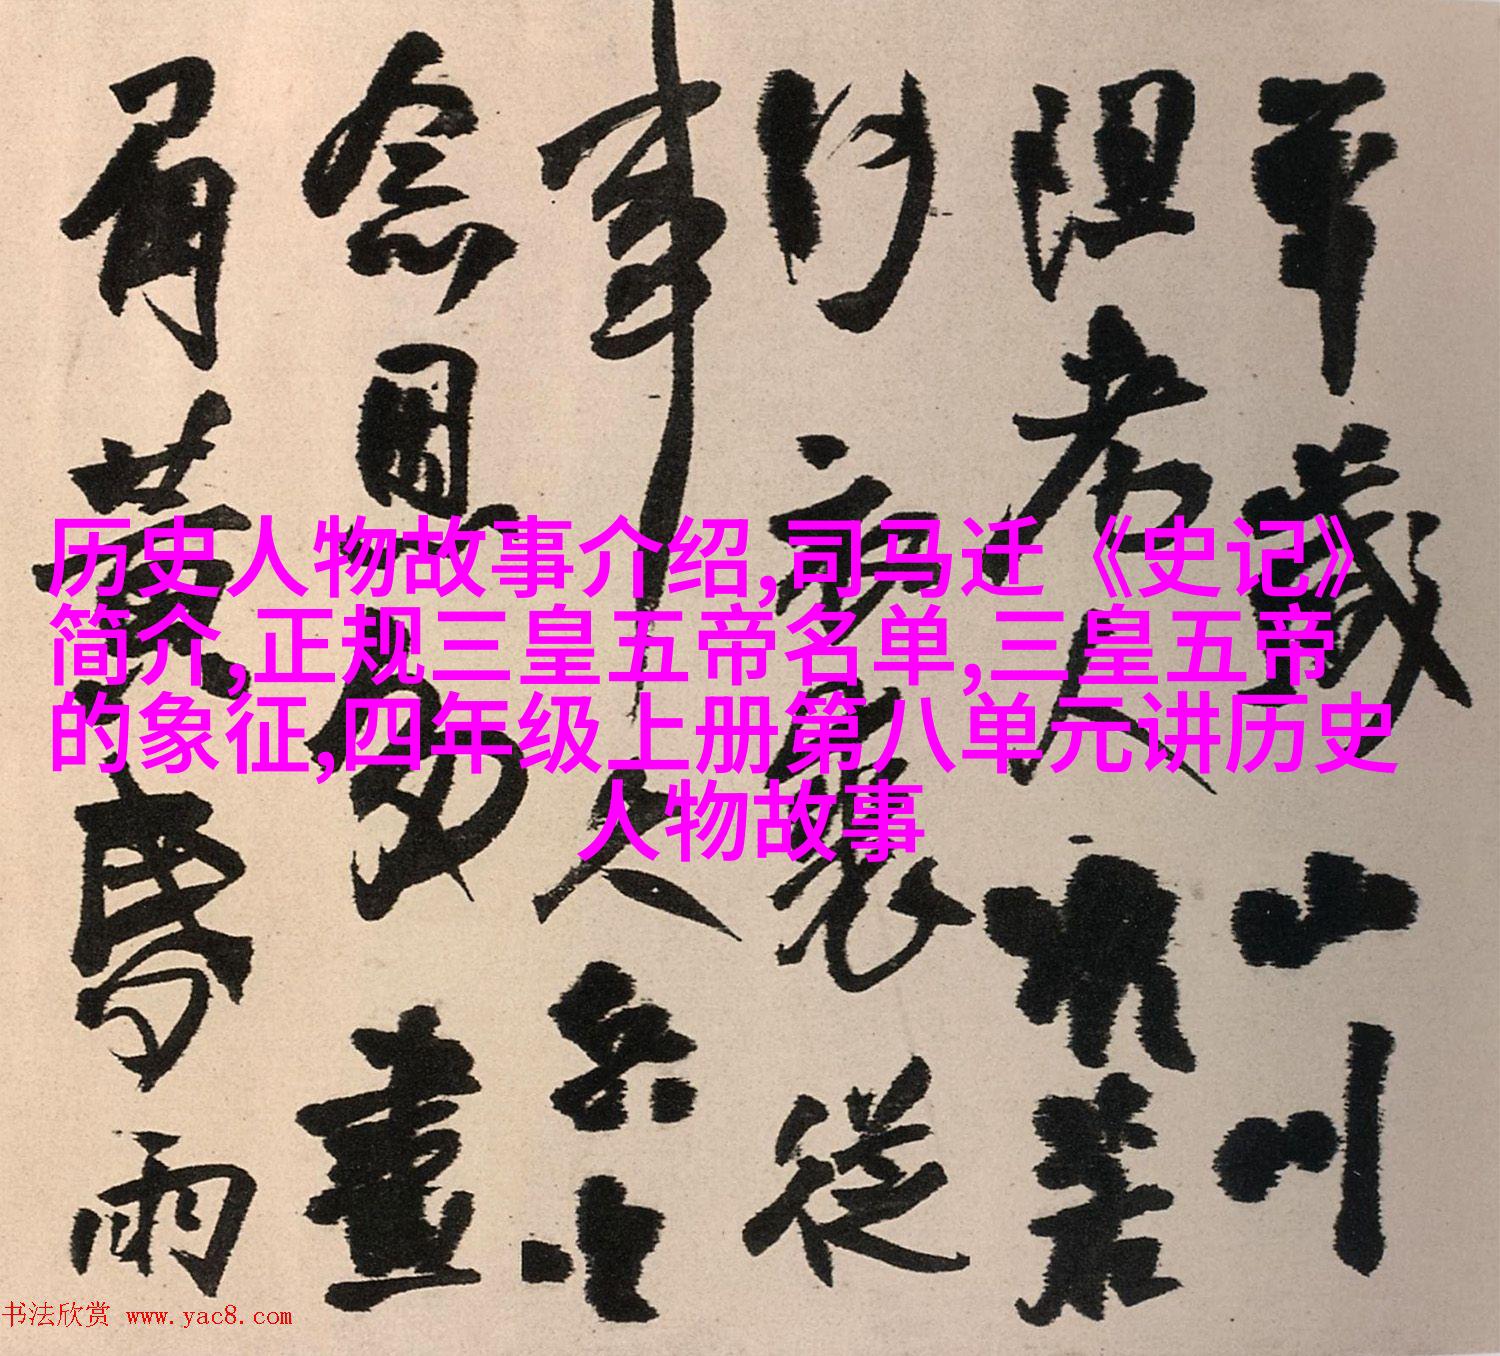 历史人物故事介绍,司马迁《史记》
简介,正规三皇五帝名单,三皇五帝
的象征,四年级上册第八单元讲历史
人物故事
歲山川
阻老人
行衣裳從
事人
念畫
雨
书法欣赏 www.yac8.com